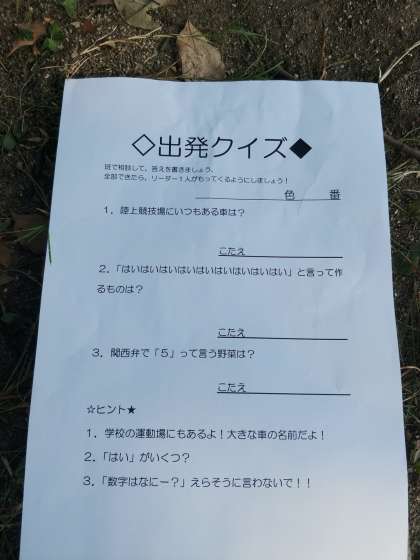 ◇出発クイズ◆
班で相談して、答えを書きましょう。
全部できたら、リーダー1人がもってくるようにしましょう！
色　番
1．陸上競技場にいつもある車は？
こたえ
2．「はいはいはいはいはいはいはいはいはいはい」と言って作
るものは？
こたえ
3．関西弁で「5」って言う野菜は？
こたえ
☆ヒント★
1．学校の運動場にもあるよ！大きな車の名前だよ！
2．「はい」がいくつ？
3．「数字はなにー？」えらそうに言わないで！！